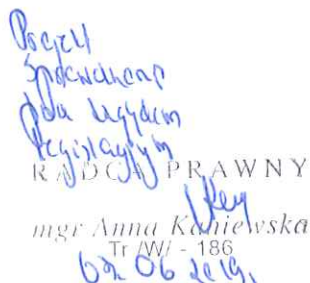 Projekt
Sprawdzono
pod względem
legislacyjnym
RADCA PRAWNY
mgr Anna Kaniewska
Tr /W/ - 186
06 2019.